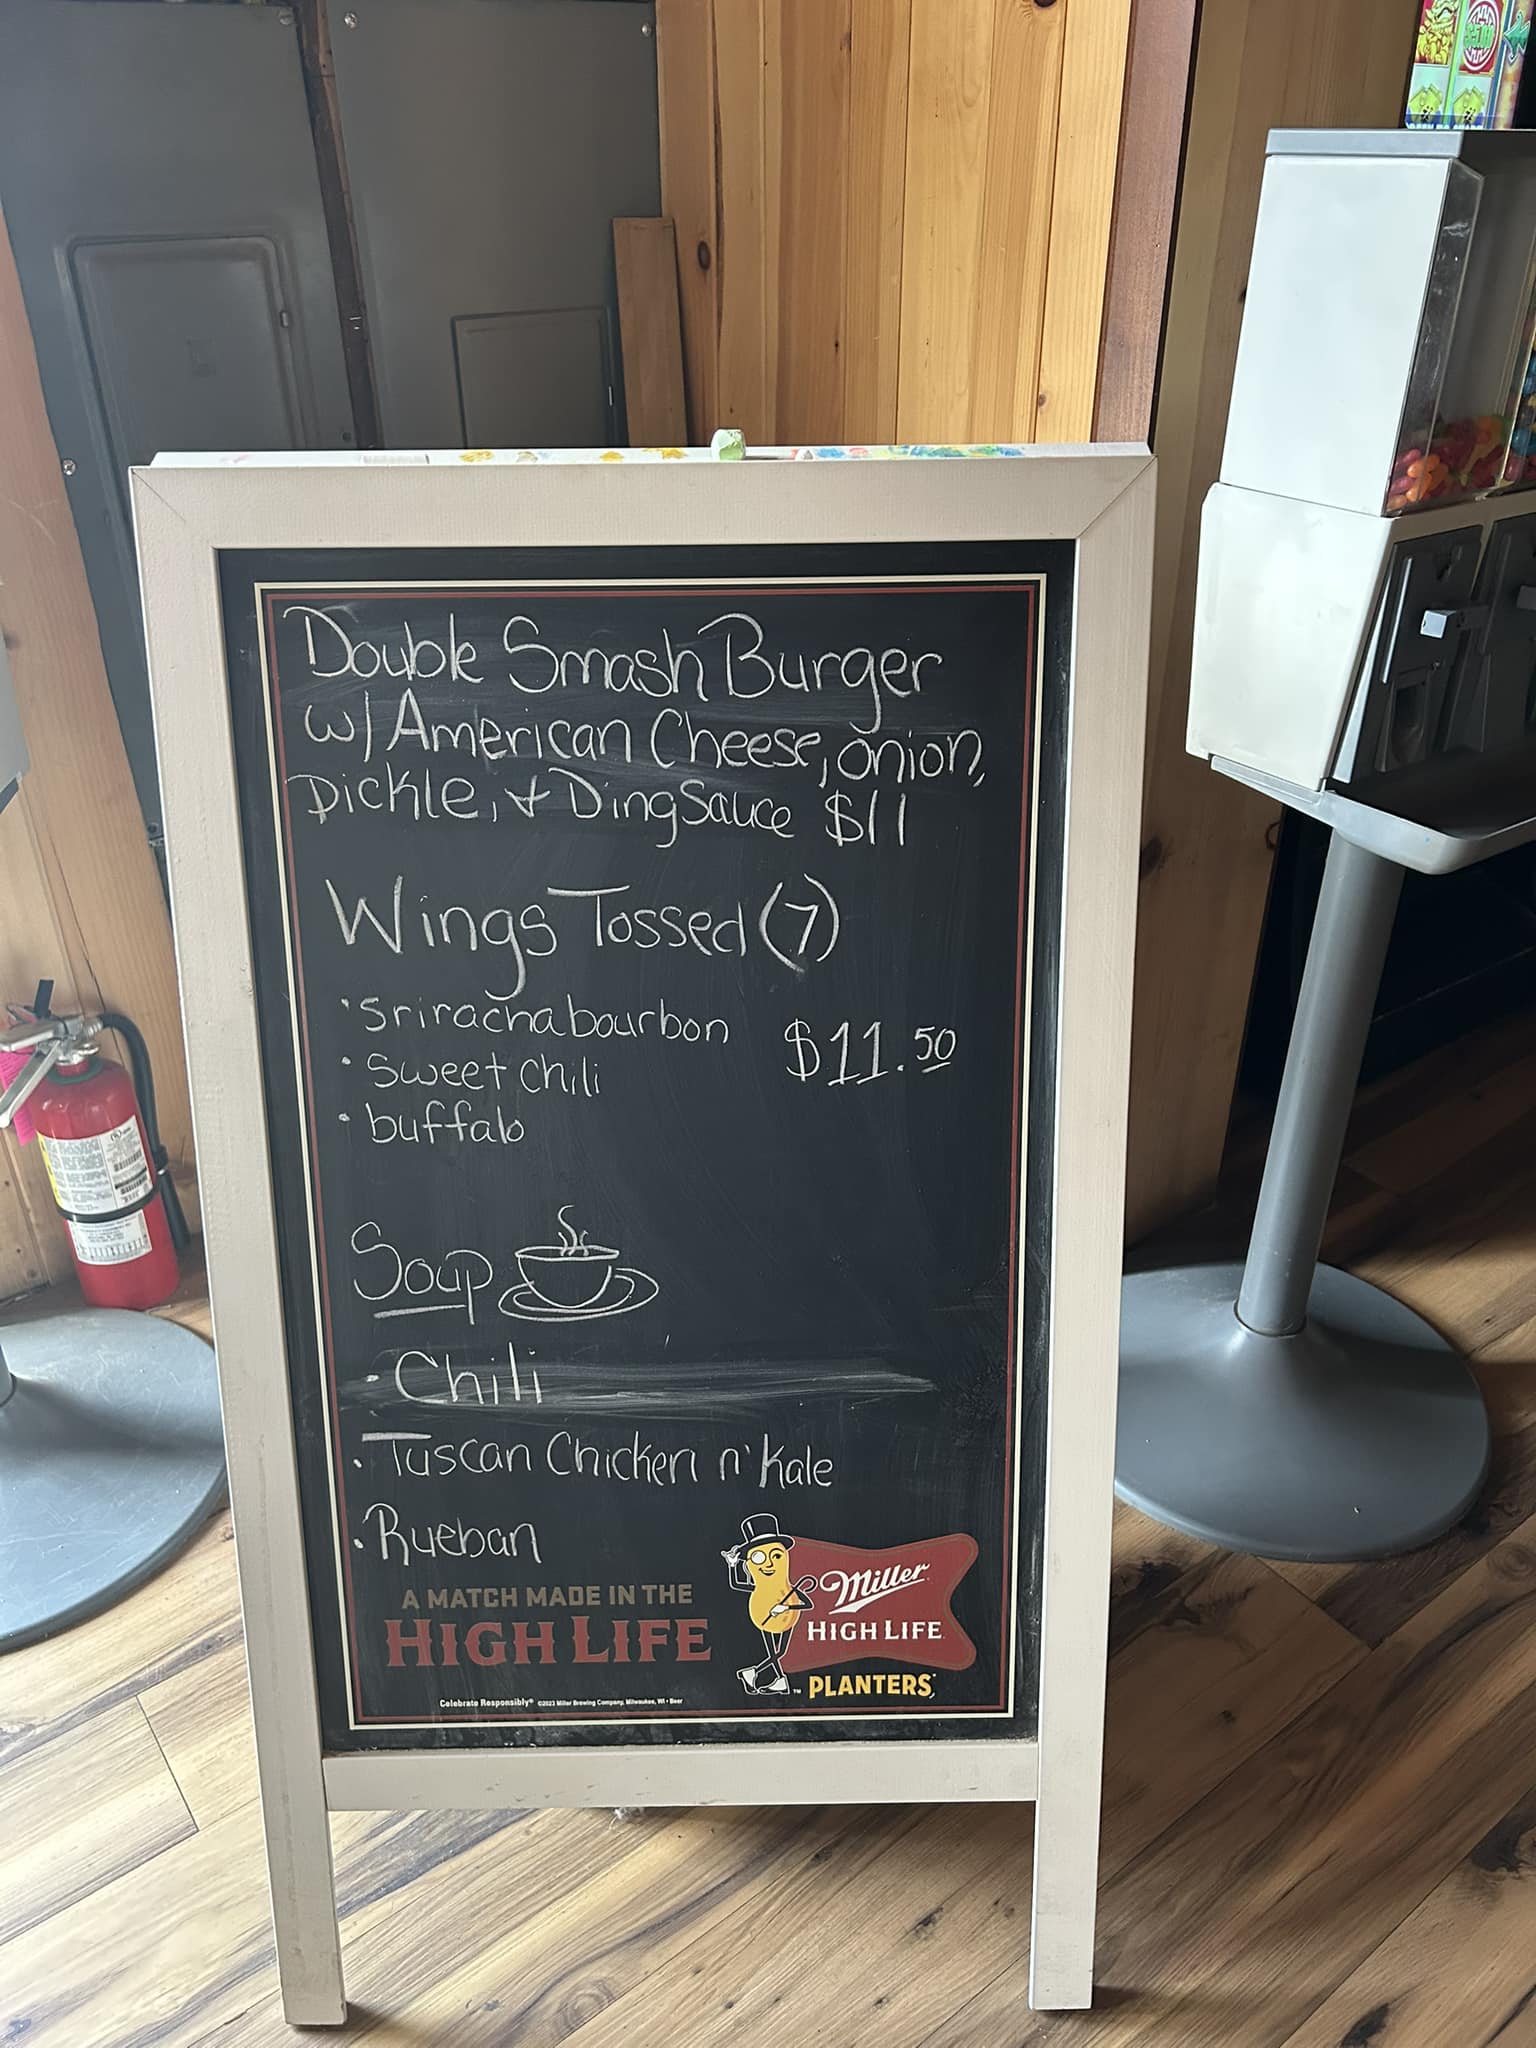 Double Smash Burger
w/ American Cheese, onion,
Pickle, & Ding Sauce $11
Wings Tossed (7)
• Sriracha bourbon
$11.50
• Sweet Chili
• buffalo
Soup
• Chili
• Tuscan Chicken n' Kale
• Rueban
A MATCH MADE IN THE
HIGH LIFE
Miller
HIGH LIFE
PLANTERS
Celebrate Responsibly® ©2023 Miller Brewing Company, Milwaukee, WI • Beer